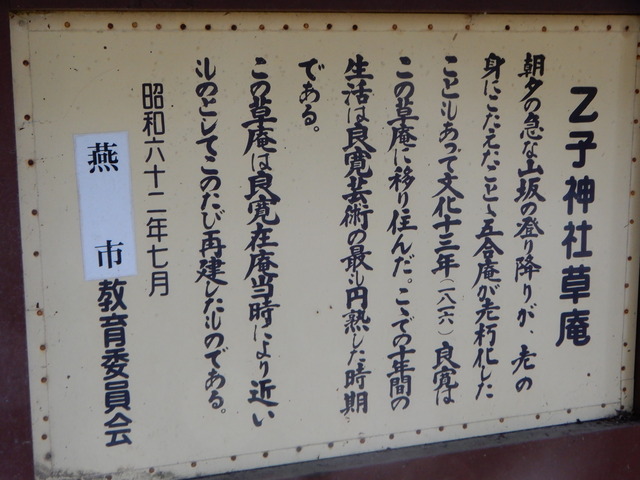 乙子神社草庵
朝夕の急な山坂の登り降りが、老の
身にこたえたことゝ五合庵が老朽化した
こともあって文化十三年(一八一六)良寛は
この草庵に移り住んだ。こゝでの十年間の
生活は良寛芸術の最も円熟した時期
である。
この草庵は良寛在庵当時により近い
ものとしてこのたび再建したものである。
昭和六十二年七月
燕市教育委員会